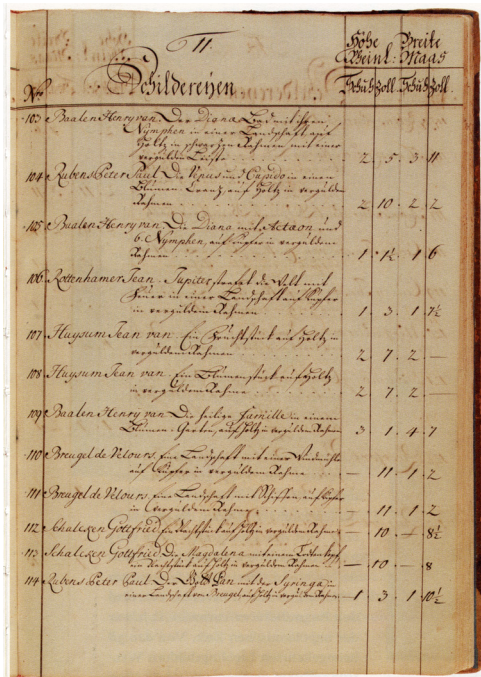 11.
Höhe Breite
Rheinl: Maas
No. Schildereyen Schüh Zoll. Schüh Zoll.
103 Baalen Henry van. Die Diana Bad mit ihren
Nymphen in einer Landschaft auf
Holtz in schwartzen Rahmen mit einer
vergulden Leiste 2 . 5 . 3 . 11
104 Rubens Peter Paul. Die Venus und Cupido in einen
Blumen Crantz, auf Holtz in vergulden
Rahmen 2 . 10 . 2 . 2
105 Baalen Henry van. Die Diana mit Actaon und
6. Nymphen, auf Kupfer in verguldem
Rahmen 1 . 1½ . 1 . 6
106 Rottenhamer Jean. Jupiter straft die Welt mit
Feuer in einer Landschaft auf Kupfer
in verguldem Rahmen 1 . 3 . 1 . 7½
107 Huysum Jean van. Ein Fruchtstück auf Holtz in
verguldem Rahmen 2 . 7 . 2 . —
108 Huysum Jean van. Ein Blumenstück auf Holtz
in verguldem Rahme 2 . 7 . 2 . —
109 Baalen Henry van. Die heilige Famille in einem
Blumen-Garten, auf Holtz in verguldem Rahmen 3 . 1 . 4 . 7
110 Breugel de Velours. Eine Landschaft mit einer Windmühle
auf Kupfer in verguldem Rahme — . 11 . 1 . 2
111 Breugel de Velours. Eine Landschaft mit Schiffen, auf Kupfer
in verguldem Rahme — . 11 . 1 . 2
112 Schalcken Gottfried. Ein Nachtstück auf Holtz in verguldem Rahme — . 10 . — . 8½
113 Schalcken Gottfried. Die Magdalena mit einem Todtenkopf
ein Nachtstück auf Holtz in verguldem Rahmen — . 10 . — . 8
114 Rubens Peter Paul. Der Pan mit der Syringa in
einer Landschaft von Breugel, auf Holtz in verguldem Rahmen 1 . 3 . 1 . 10½